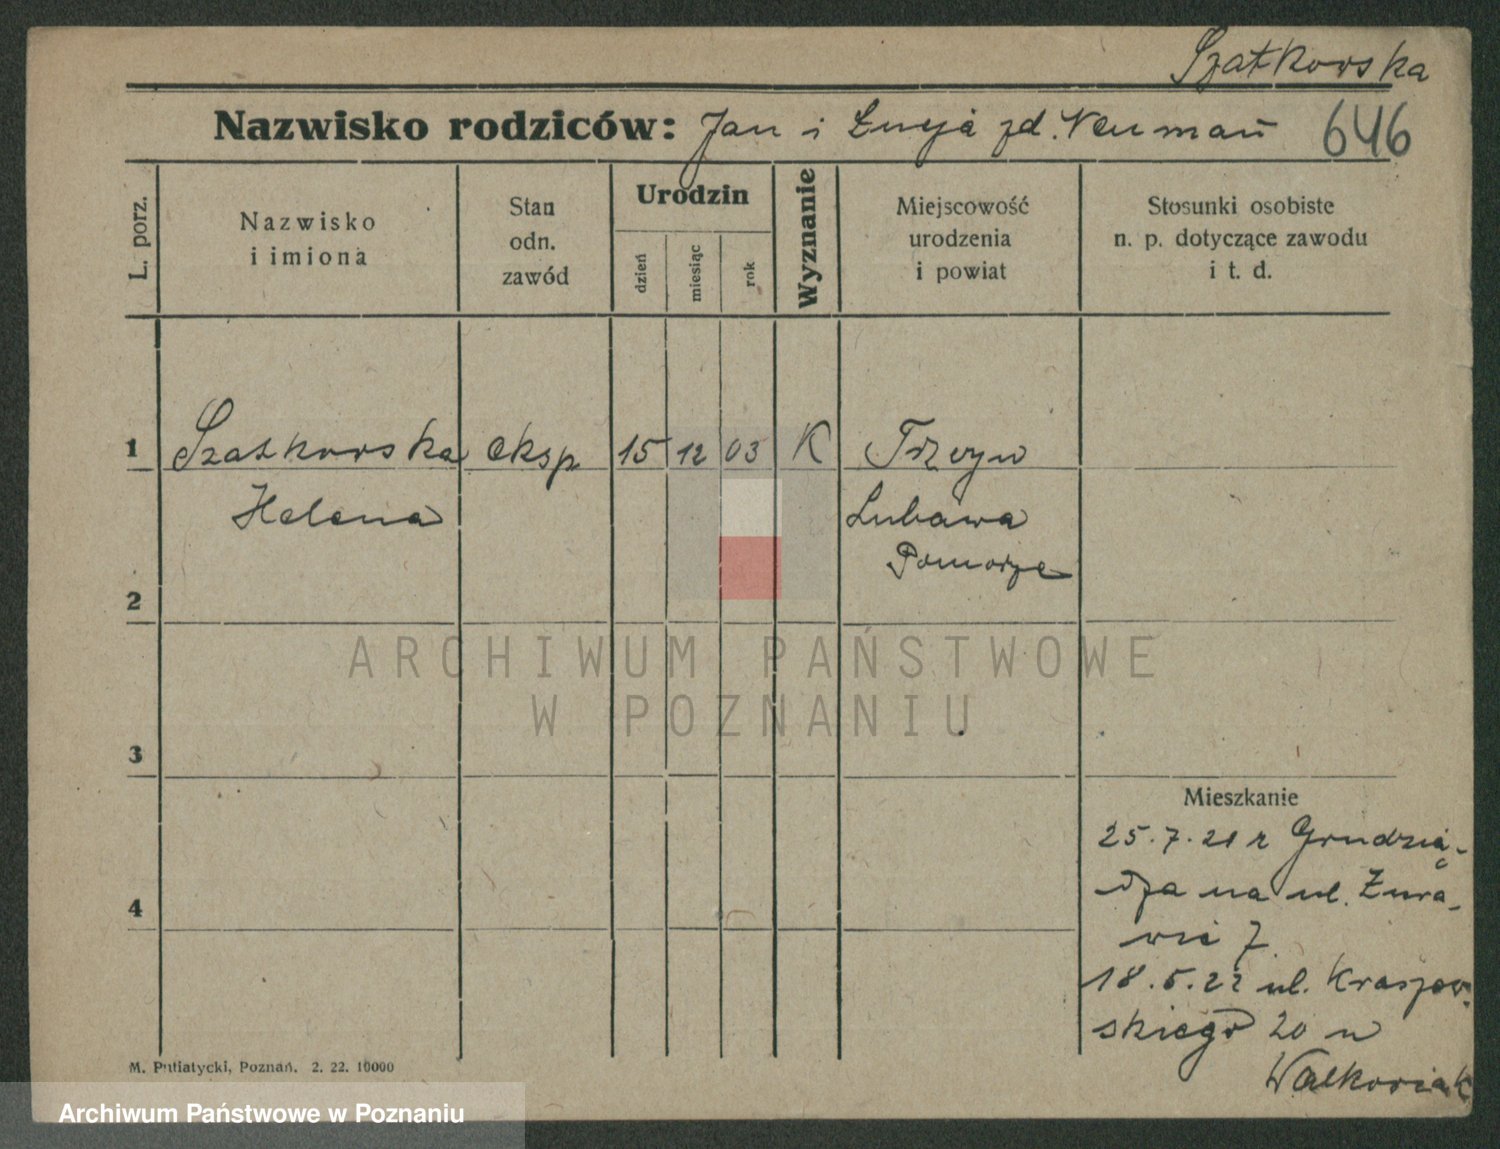 Szatkowska
Nazwisko rodziców: Jan i Łucja zd. Neuman 646
L. porz.
Nazwisko
i imiona
Stan
odn.
zawód
Urodzin
dzień
miesiąc
rok
Wyznanie
Miejscowość
urodzenia
i powiat
Stosunki osobiste
n. p. dotyczące zawodu
i t. d.
1 Szatkowska eksp 15 12 03 K
Helena Lubawa
Pomorze
2
ARCHIWUM PAŃSTWOWE
W POZNANIU
3
Mieszkanie
25.7.21 z Grudzią-
dza na ul. Żura-
4
wie 7
18.5.22 ul. Kraszew-
skiego 20 u
Walkowiak
M. Putiatycki, Poznań. 2. 22. 10000
Archiwum Państwowe w Poznaniu